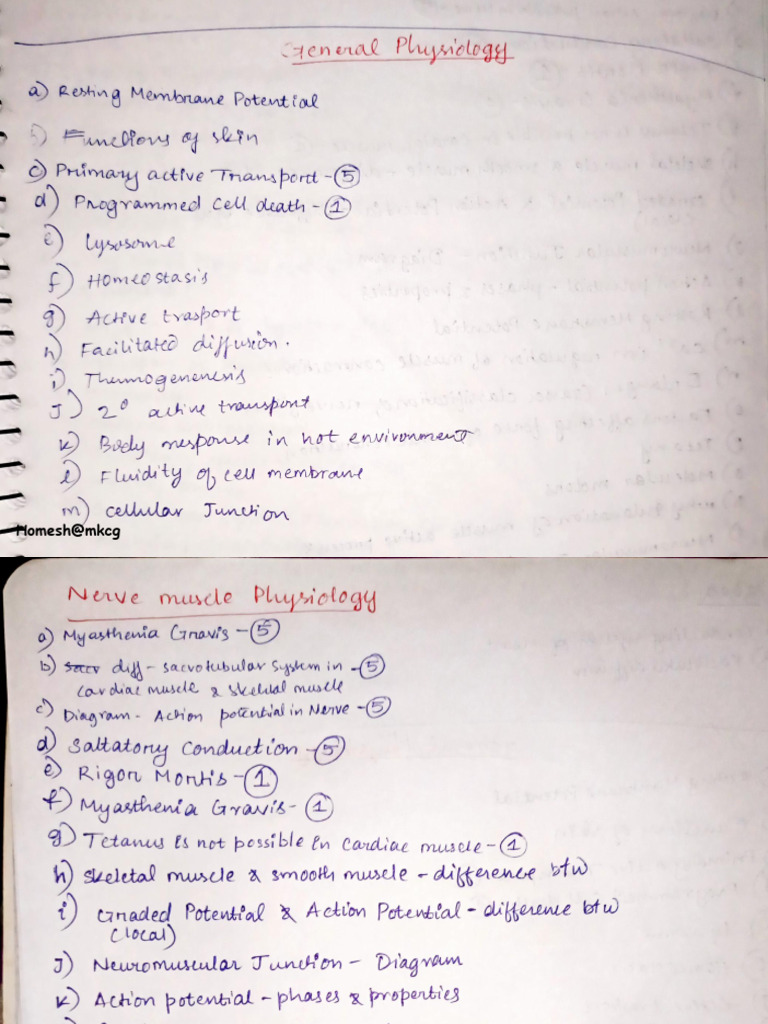 General Physiology
a) Resting Membrane Potential
b) Functions of skin
c) Primary active Transport - ⑤
d) Programmed Cell death - ①
e) Lysosome
f) Homeostasis
g) Active trasport
h) Facilitated diffusion.
i) Thermogenenesis
J) 2° active transport
k) Body response in hot environment
l) Fluidity of cell membrane
m) cellular Junction
Homesh@mkcg
Nerve muscle Physiology
a) Myasthenia Gravis - ⑤
b) diff - sacrotubular system in - ⑤
cardiac muscle & skeletal muscle
c) Diagram - Action potential in Nerve - ⑤
d) Saltatory Conduction - ⑤
e) Rigor Mortis - ①
f) Myasthenia Gravis - ①
g) Tetanus is not possible in cardiac muscle - ①
h) skeletal muscle & smooth muscle - difference btw
i) Graded Potential & Action Potential - difference btw
(local)
J) Neuromuscular Junction - Diagram
k) Action potential - phases & properties